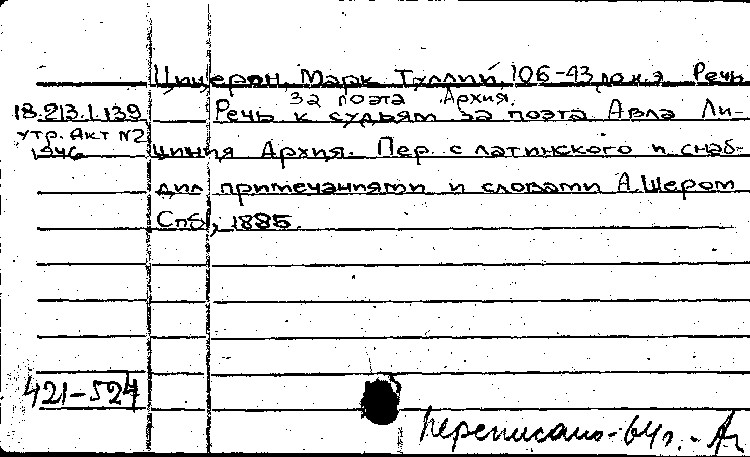 Цицерон, Марк Туллий, 106-43 до н.э. Речь
за поэта Архия.
18.213.1.139 Речь к судьям за поэта Авла Ли-
утр. Акт №2
1946 циния Архия. Пер. с латинского и снаб-
дил примечаниями и словами А.Шером
Спб, 1885.
421-524
Переписано-64г.-